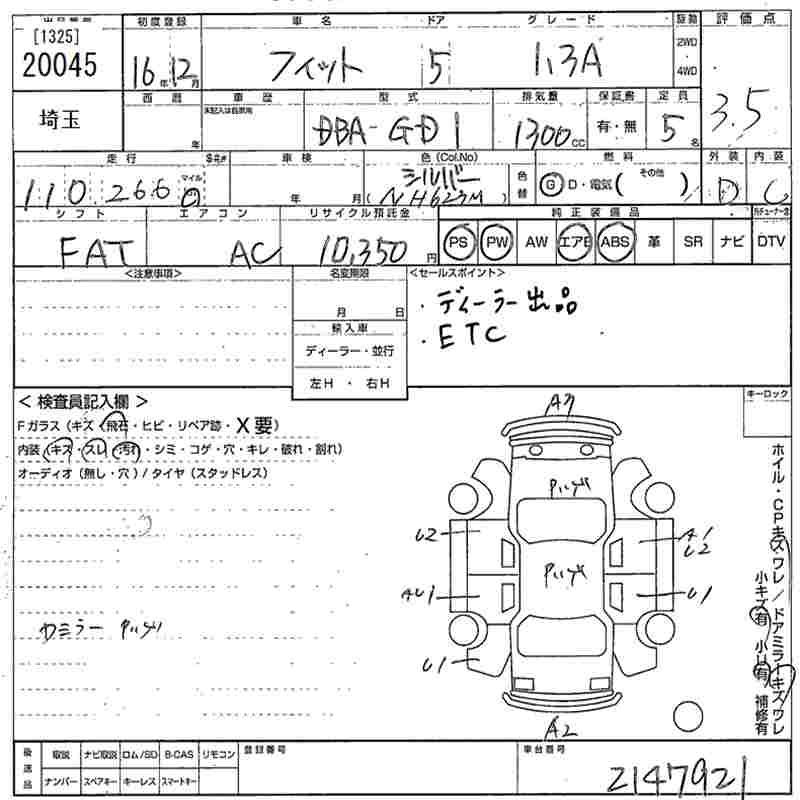 出品番号 初度登録 車名 ドア グレード 駆動 評価点
[1325]
20045 16年 12月 フィット 5 1.3A 2WD・4WD 3.5
埼玉 西暦 年 車歴 未記入は自家用 型式 排気量 保証書 定員
DBA-GD1 1300cc 有・無 5名
走行 車検 色(Col.No) 色替 燃料 外装 内装
110,266 マイル 年 月 シルバー (NH623M) Ⓖ D・電気 ( その他 ) D C
シフト エアコン リサイクル預託金 純正装備品
FAT AC 10,350円 PS PW AW エアB ABS 革 SR ナビ DTV
<注意事項> 名変期限 <セールスポイント>
月 日
・ディーラー出品
輸入車
・ETC
ディーラー・並行
左H ・ 右H
< 検査員記入欄 > キーロック
Fガラス (キズ・飛石・ヒビ・リペア跡・X要)
内装 (キズ・スレ・汚れ・シミ・コゲ・穴・キレ・破れ・割れ)
オーディオ (無し・穴) / タイヤ (スタッドレス)
A3
U2
A1
U2
U1
U1
A2
ホイル・CPキズワレ / ドアミラーキズワレ
小キズ有 小U有 補修有
後送品 取説 ナビ取説 ロム/SD B-CAS リモコン 登録番号 車台番号
ナンバー スペアキー キーレス スマートキー 2147921